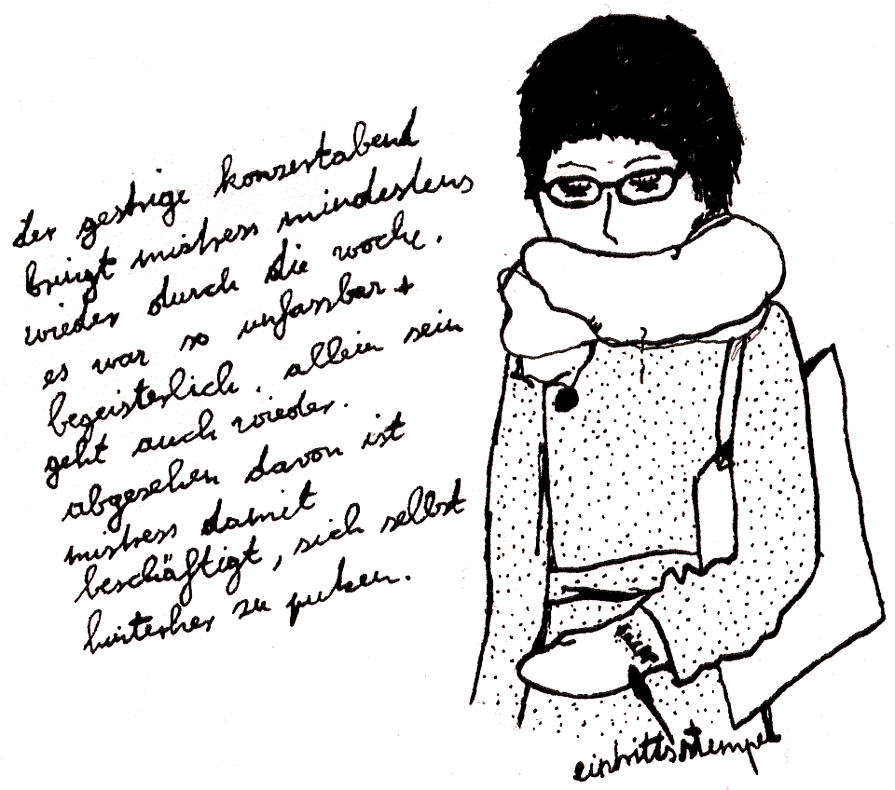 der gestrige konzertabend
bringt mistress mindestens
wieder durch die woche.
es war so unfassbar +
begeisterlich. allein sein
geht auch wieder.
abgesehen davon ist
mistress damit
beschäftigt, sich selbst
hinterher zu putzen.
eintrittsstempel